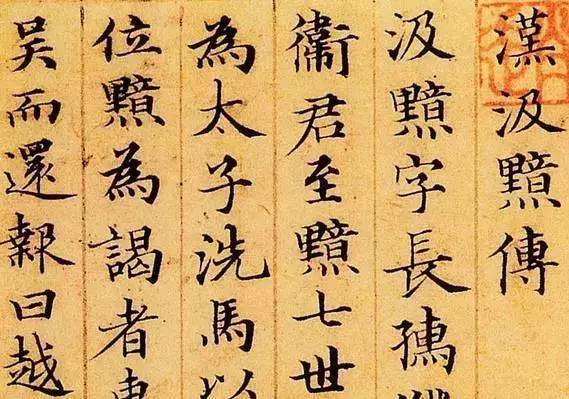 漢汲黯傳
汲黯字長孺
衛君至黯七世
為太子洗馬以
位黯為謁者東
吴而還報曰越